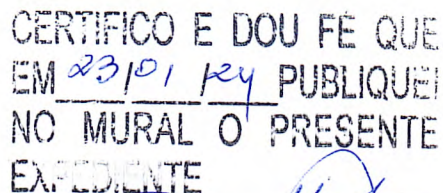 CERTIFICO E DOU FÉ QUE
EM 23/01/24 PUBLIQUEI
NO MURAL O PRESENTE
EXPEDIENTE